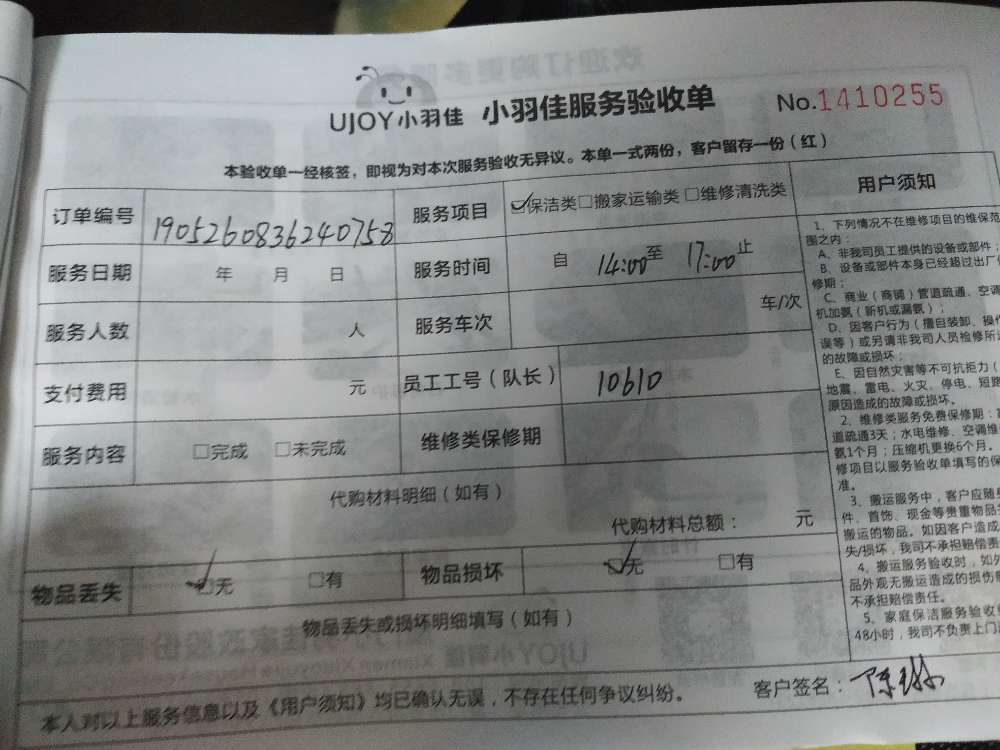 UJOY小羽佳 小羽佳服务验收单 No.1410255
本验收单一经核签，即视为对本次服务验收无异议。本单一式两份，客户留存一份（红）
订单编号 190526083624075​8 服务项目 ☑保洁类□搬家运输类 □维修清洗类
服务日期 年 月 日 服务时间 自 14:00至 17:00止
服务人数 人 服务车次 车/次
支付费用 元 员工工号（队长） 10610
服务内容 □完成 □未完成 维修类保修期
代购材料明细（如有）
代购材料总额： 元
物品丢失 ☑无 □有 物品损坏 ☑无 □有
物品丢失或损坏明细填写（如有）
本人对以上服务信息以及《用户须知》均已确认无误，不存在任何争议纠纷。 客户签名：陈
用户须知
1、下列情况不在维修项目的维保范
围之内：
A、非我司员工提供的设备或部件；
B、设备或部件本身已经超过出厂
修期；
C、商业（商铺）管道疏通、空调
机加氨（新机或漏氨）；
D、因客户行为（擅自装卸、操作
误等）或另请非我司人员检修所
的故障或损坏；
E、因自然灾害等不可抗拒力（
地震、雷电、火灾、停电、短路
原因造成的故障或损坏。
2、维修类服务免费保修期：
道疏通3天；水电维修、空调维
氨1个月；压缩机更换6个月。
修项目以服务验收单填写的保
准。
3、搬运服务中，客户应随身
件、首饰、现金等贵重物品
搬运的物品。如因客户造成
失/损坏，我司不承担赔偿责
4、搬运服务验收时，如外
品外观无搬运造成的损伤
不承担赔偿责任。
5、家庭保洁服务验收
48小时，我司不负责上门